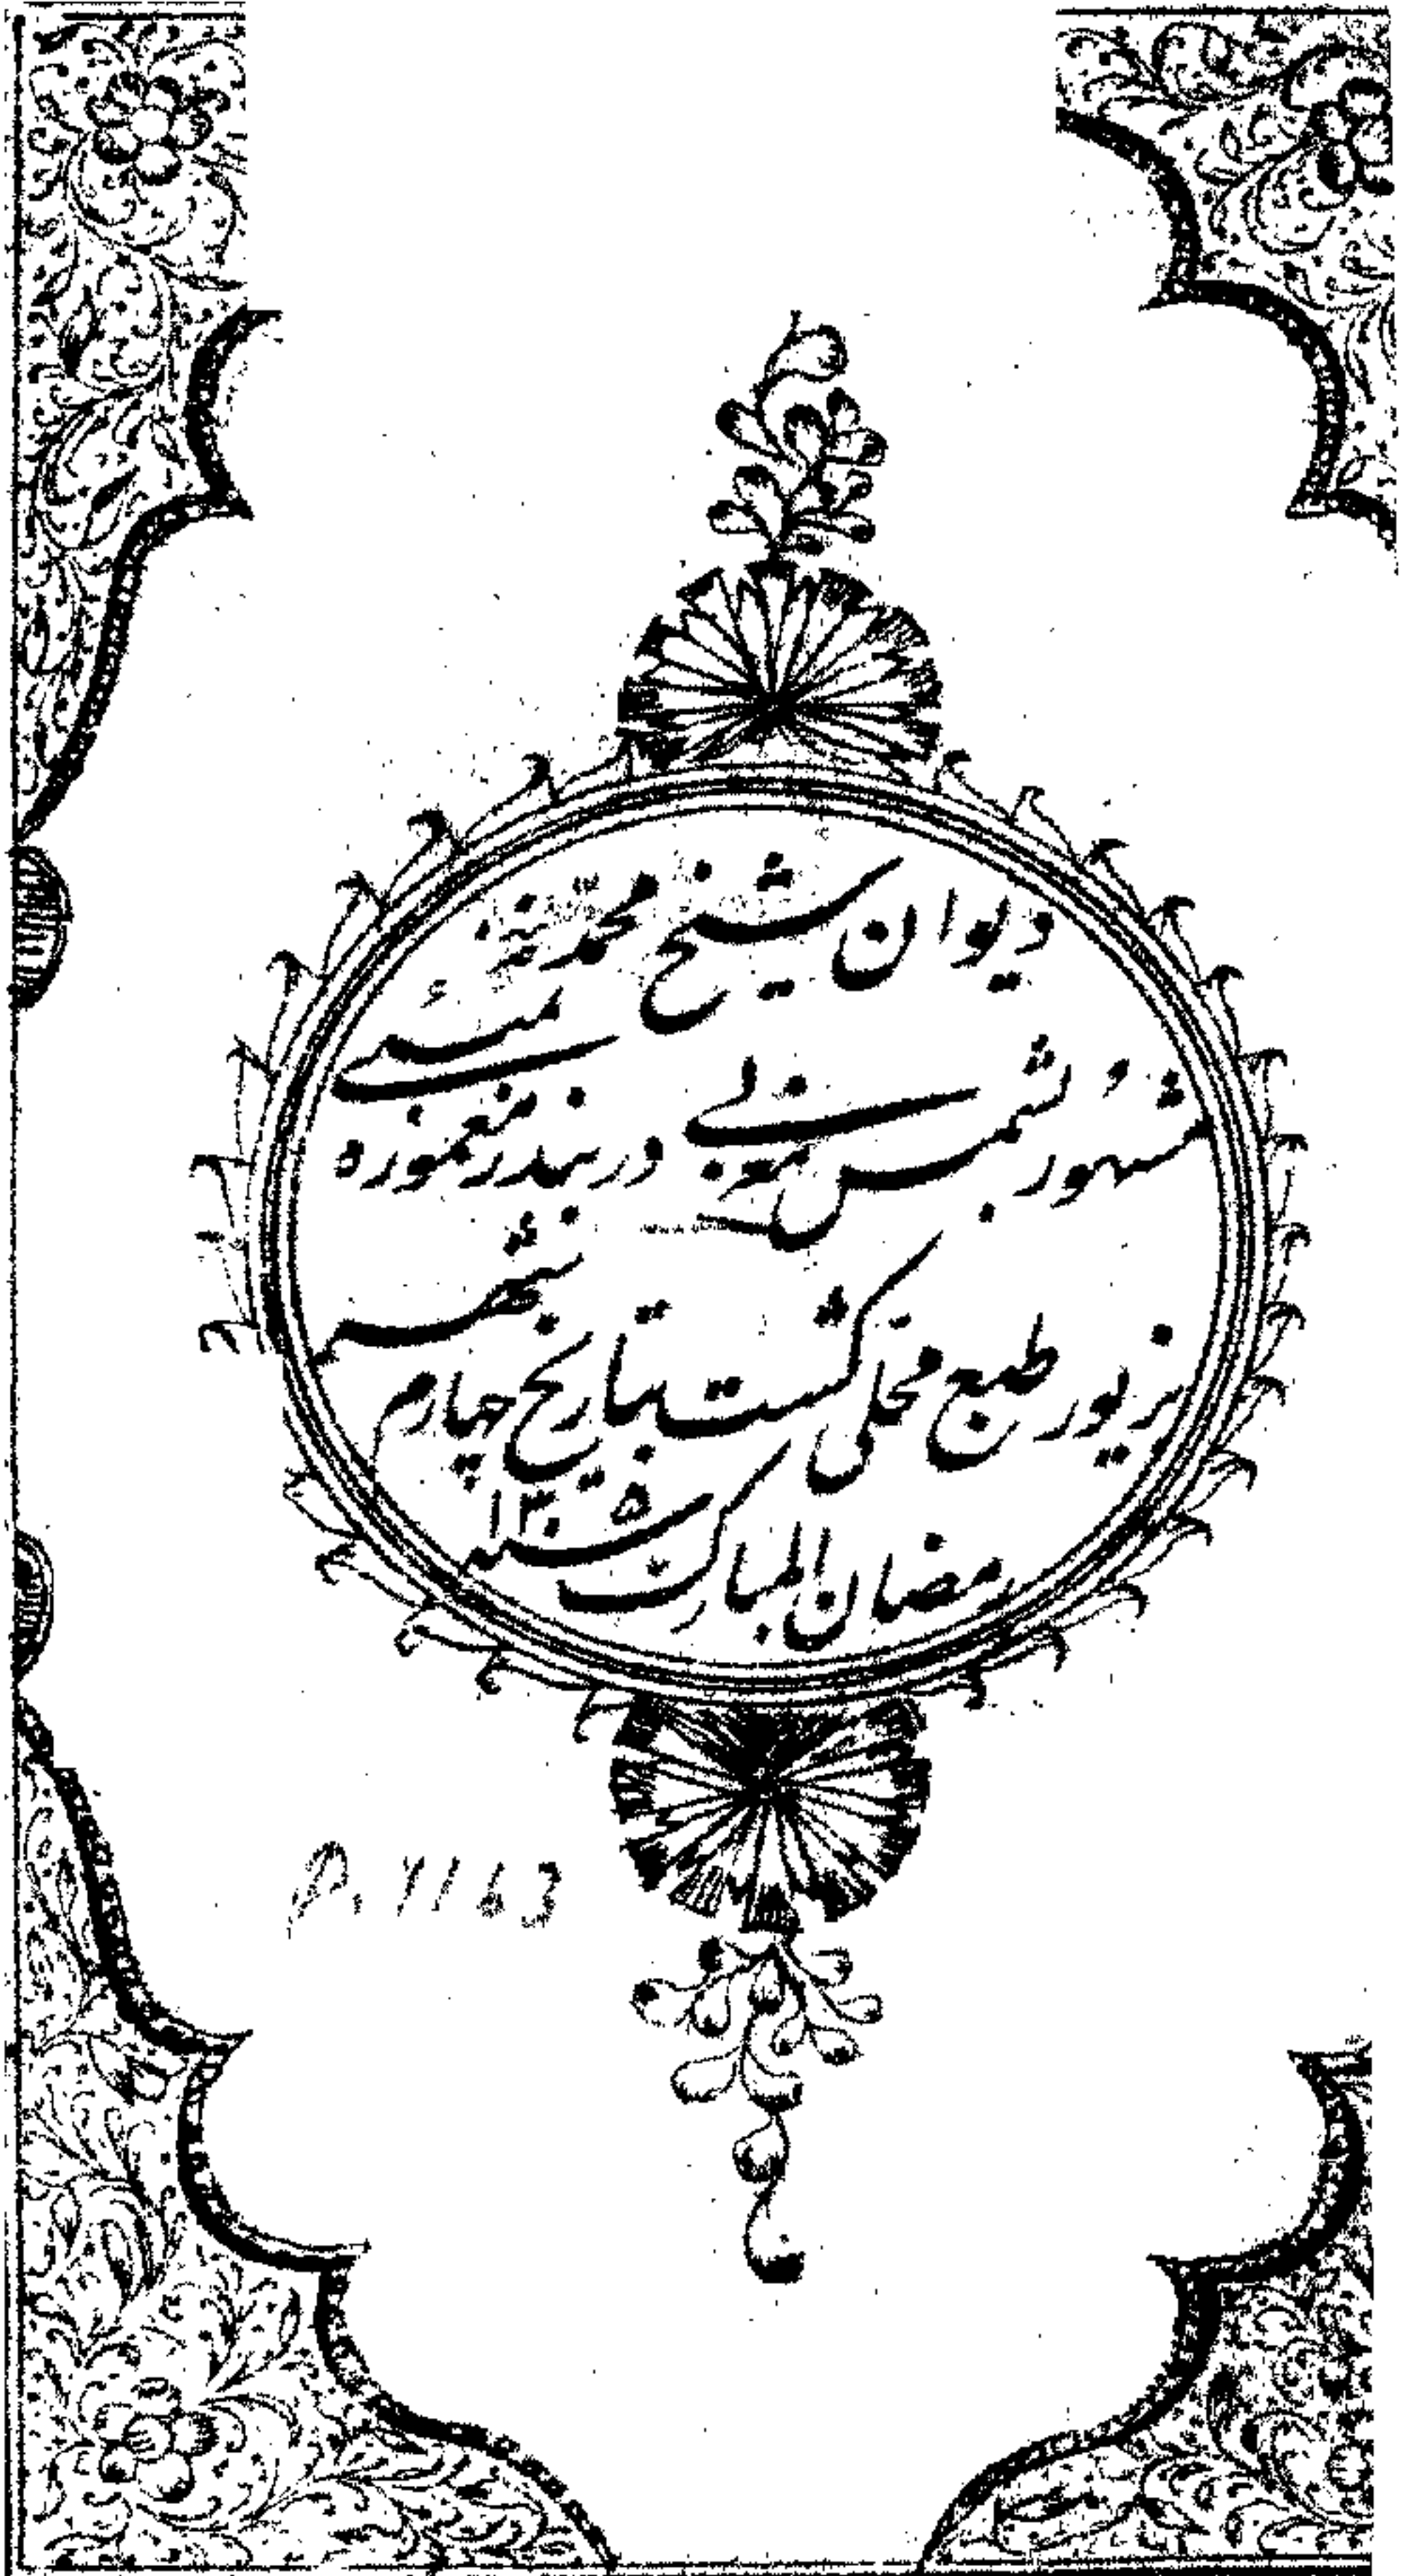 دیوان شیخ محمد
مشهور بشمس مغربی در بندر معموره بمبئی
بزیور طبع محلی گشت بتاریخ چهارم شهر
رمضان المبارک سنه ۱۳۰۵
P. 7163